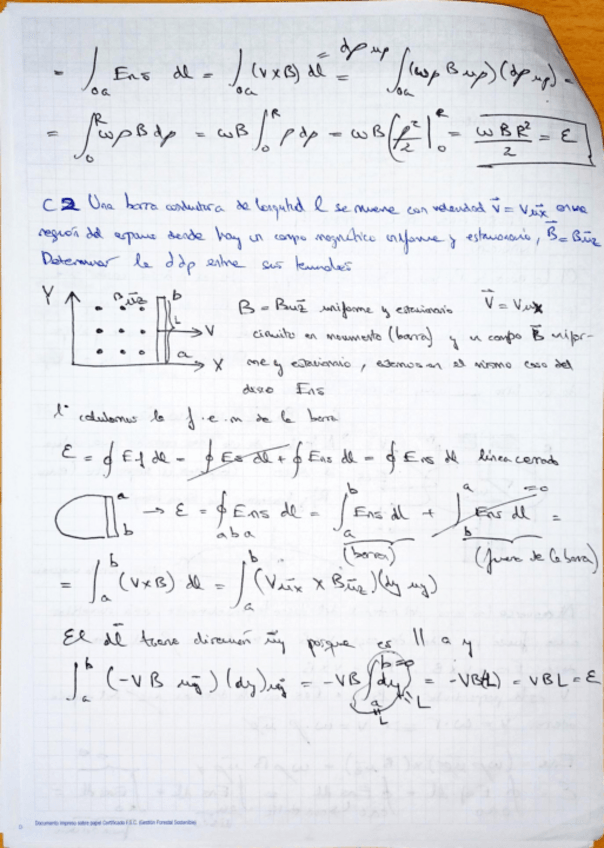 = ∫_{oa} Ens dl = ∫_{oa} (v×B) dl = ∫_{oa} (ωρ B uρ)(dρ uρ) =
= dρ uρ
= ∫_0^R ωρ B dρ = ωB ∫_0^R ρ dρ = ωB (ρ²/2 |_0^R = ωBR²/2 = ε
C2 Una barra conductora de longitud l se mueve con velocidad v = v ux en una
región del espacio donde hay un campo magnético uniforme y estacionario, B = B uz
Determinar la ddp entre sus terminales
Y B uz b
L
V
a
X
B = B uz uniforme y estacionario V = V ux
circuito en movimiento (barra) y un campo B unifor-
me y estacionario, estamos en el mismo caso del
disco Ens
1º calculamos la f.e.m de la barra
ε = ∮ Ef dl = ∮ Es dl + ∮ Ens dl = ∮ Ens dl línea cerrada
a
b
→ ε = ∮_{aba} Ens dl = ∫_a^b Ens dl + ∫_b^a Ens dl =
=0
(barra) (fuera de la barra)
= ∫_a^b (V×B) dl = ∫_a^b (V ux × B uz)(dy uy)
El dl tiene dirección uy porque es || a y
∫_a^b (-VB uy)(dy) uy = -VB ∫_a^b dy = -VB(-L) = VBL = ε
b=0
a
"
L
L
Documento impreso sobre papel Certificado F.S.C. (Gestión Forestal Sostenible)